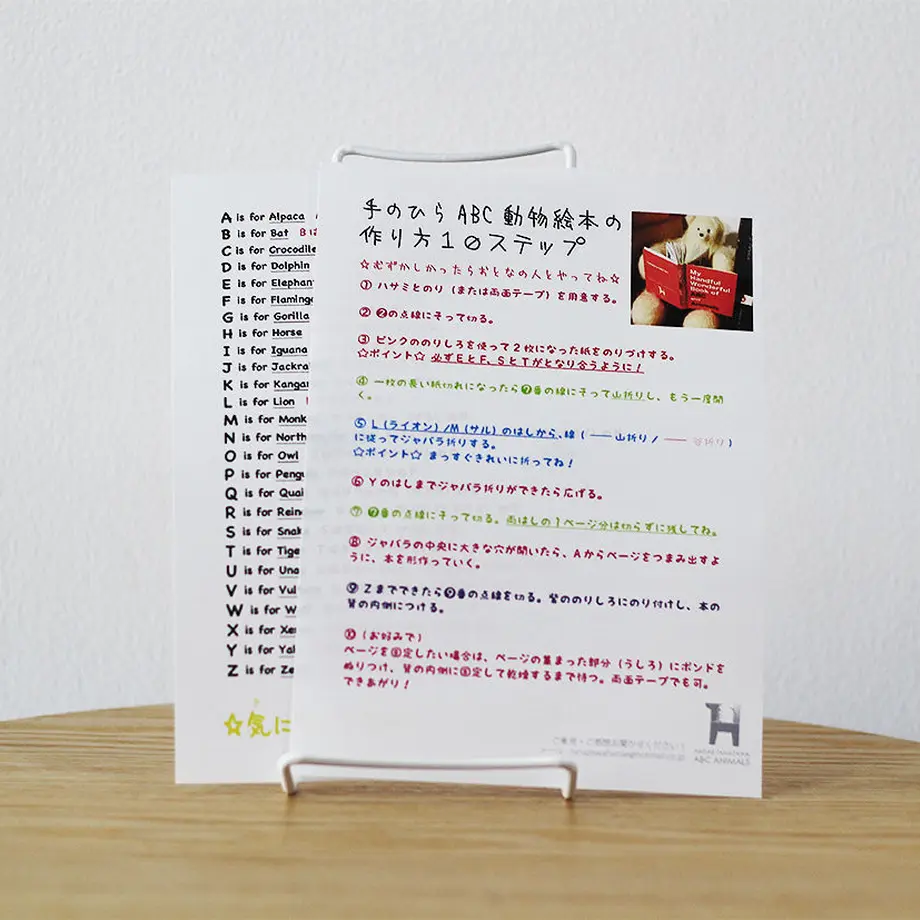 A is for Alpaca
B is for Bat Bは
C is for Crocodile
D is for Dolphin
E is for Elephan
F is for Flaming
G is for Gorilla
H is for Horse
I is for Iguana
J is for Jackra
K is for Kangar
L is for Lion
M is for Monk
N is for North
O is for Owl
P is for Pengu
Q is for Quai
R is for Rein
S is for Snak
T is for Tige
U is for Una
V is for Vul
W is for W
X is for Xe
Y is for Yal
Z is for Ze
☆気に
手のひら ABC 動物絵本の
作り方10ステップ
☆むずかしかったらおとなの人とやってね☆
① ハサミとのり（または両面テープ）を用意する。
② ❷の点線にそって切る。
③ ピンクののりしろを使って2枚になった紙をのりづけする。
☆ポイント☆ 必ずEとF、SとTがとなり合うように！
④ 一枚の長い紙切れになったら❷番の線にそって山折りし、もう一度開
く。
⑤ L（ライオン）/M（サル）のはしから、線（ ── 山折り / ── 谷折り ）
に従ってジャバラ折りする。
☆ポイント☆ まっすぐきれいに折ってね！
⑥ Yのはしまでジャバラ折りができたら広げる。
⑦ ❷番の点線にそって切る。両はしの1ページ分は切らずに残してね。
⑧ ジャバラの中央に大きな穴が開いたら、Aからページをつまみ出すよ
うに、本を形作っていく。
⑨ Zまでできたら❷番の点線を切る。背ののりしろにのり付けし、本の
背の内側につける。
⑩（お好みで）
ページを固定したい場合は、ページの集まった部分（うしろ）にボンドを
ぬりつけ、背の内側に固定して乾燥するまで待つ。両面テープでも可。
できあがり！
My
Handful
Wonderful
Book of
ABC
and
Animals
ご意見・ご感想お聞かせください！
ABC ANIMALS